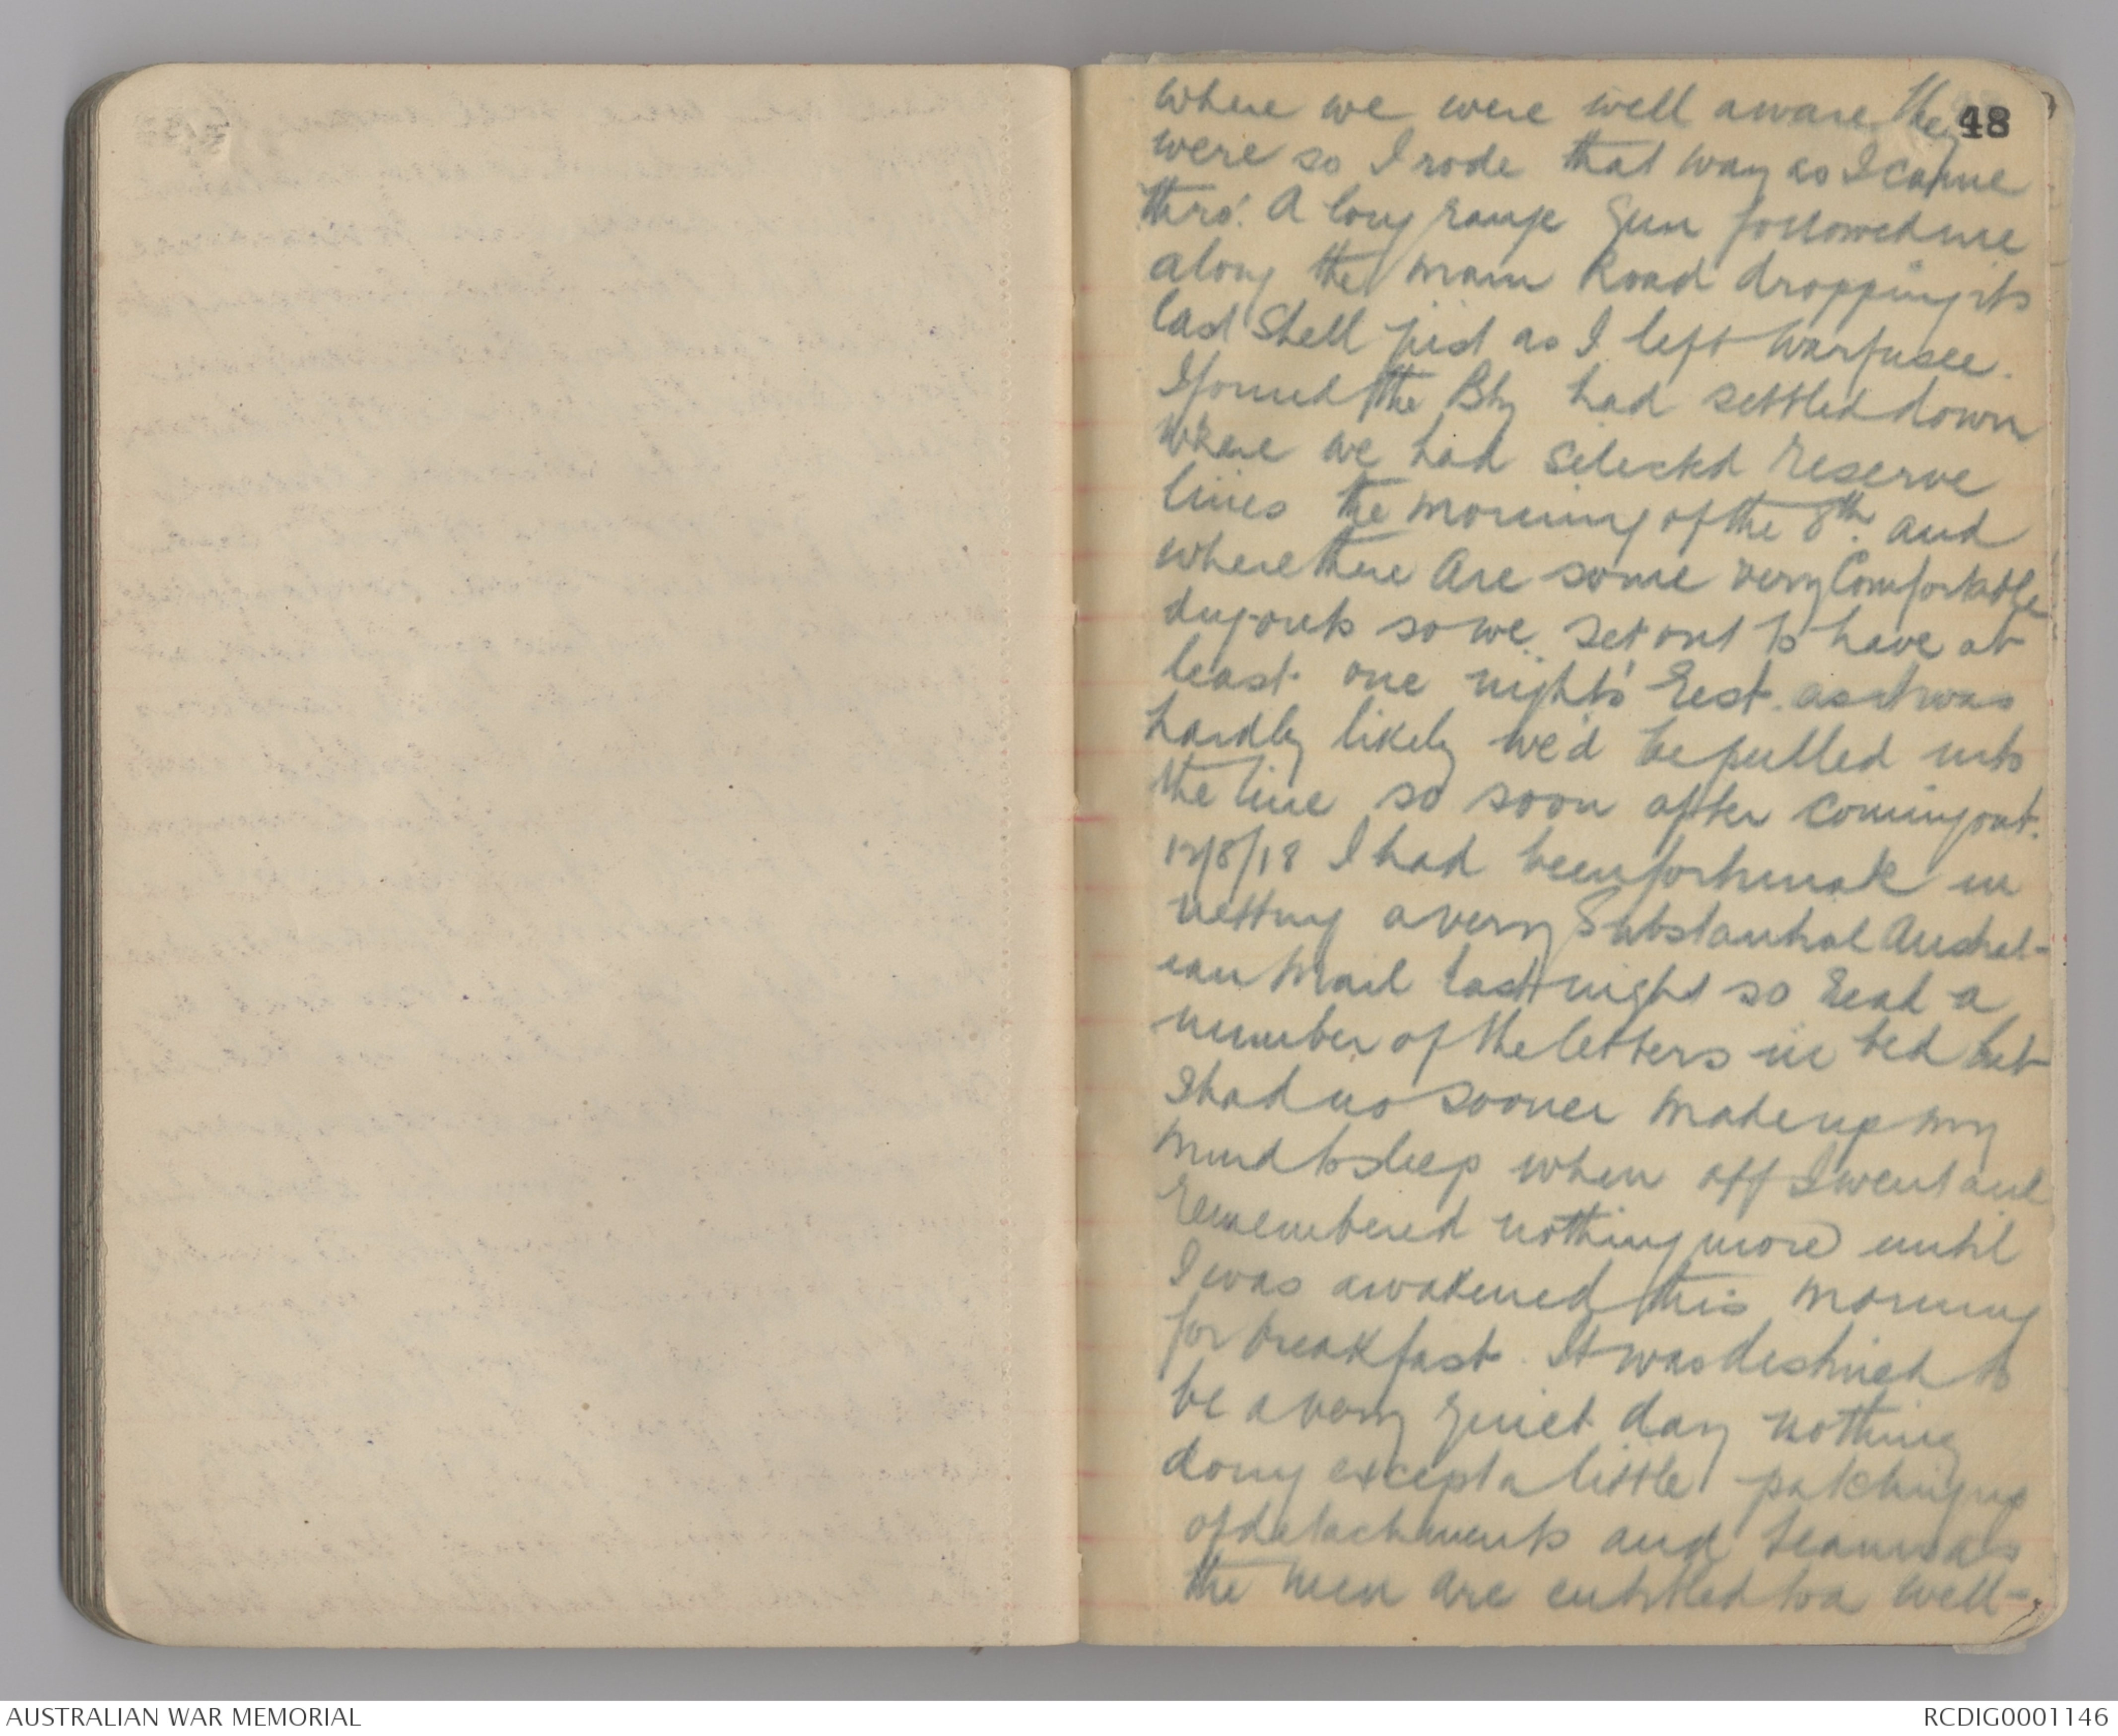 48
where we were well aware they
were so I rode that way as I came
thro'. A long range Gun followed me
along the main Road dropping its
last shell just as I left Warfusee.
I found the Bty had settled down
where we had selected reserve
lines the morning of the 8th. and
where there are some very Comfortable
dug-outs so we set out to have at
least one nights' rest. as it was
hardly likely we'd be pulled into
the line so soon after coming out.
12/8/18 I had been fortunate in
netting a very Substantial Austral-
ian Mail last night so read a
number of the letters in bed but
I had no sooner made up my
mind to sleep when off I went and
remembered nothing more until
I was awakened this morning
for breakfast. It was destined to
be a very quiet day nothing
doing except a little patching up
of detachments and teams as
the men are entitled to a well-
AUSTRALIAN WAR MEMORIAL
RCDIG0001146